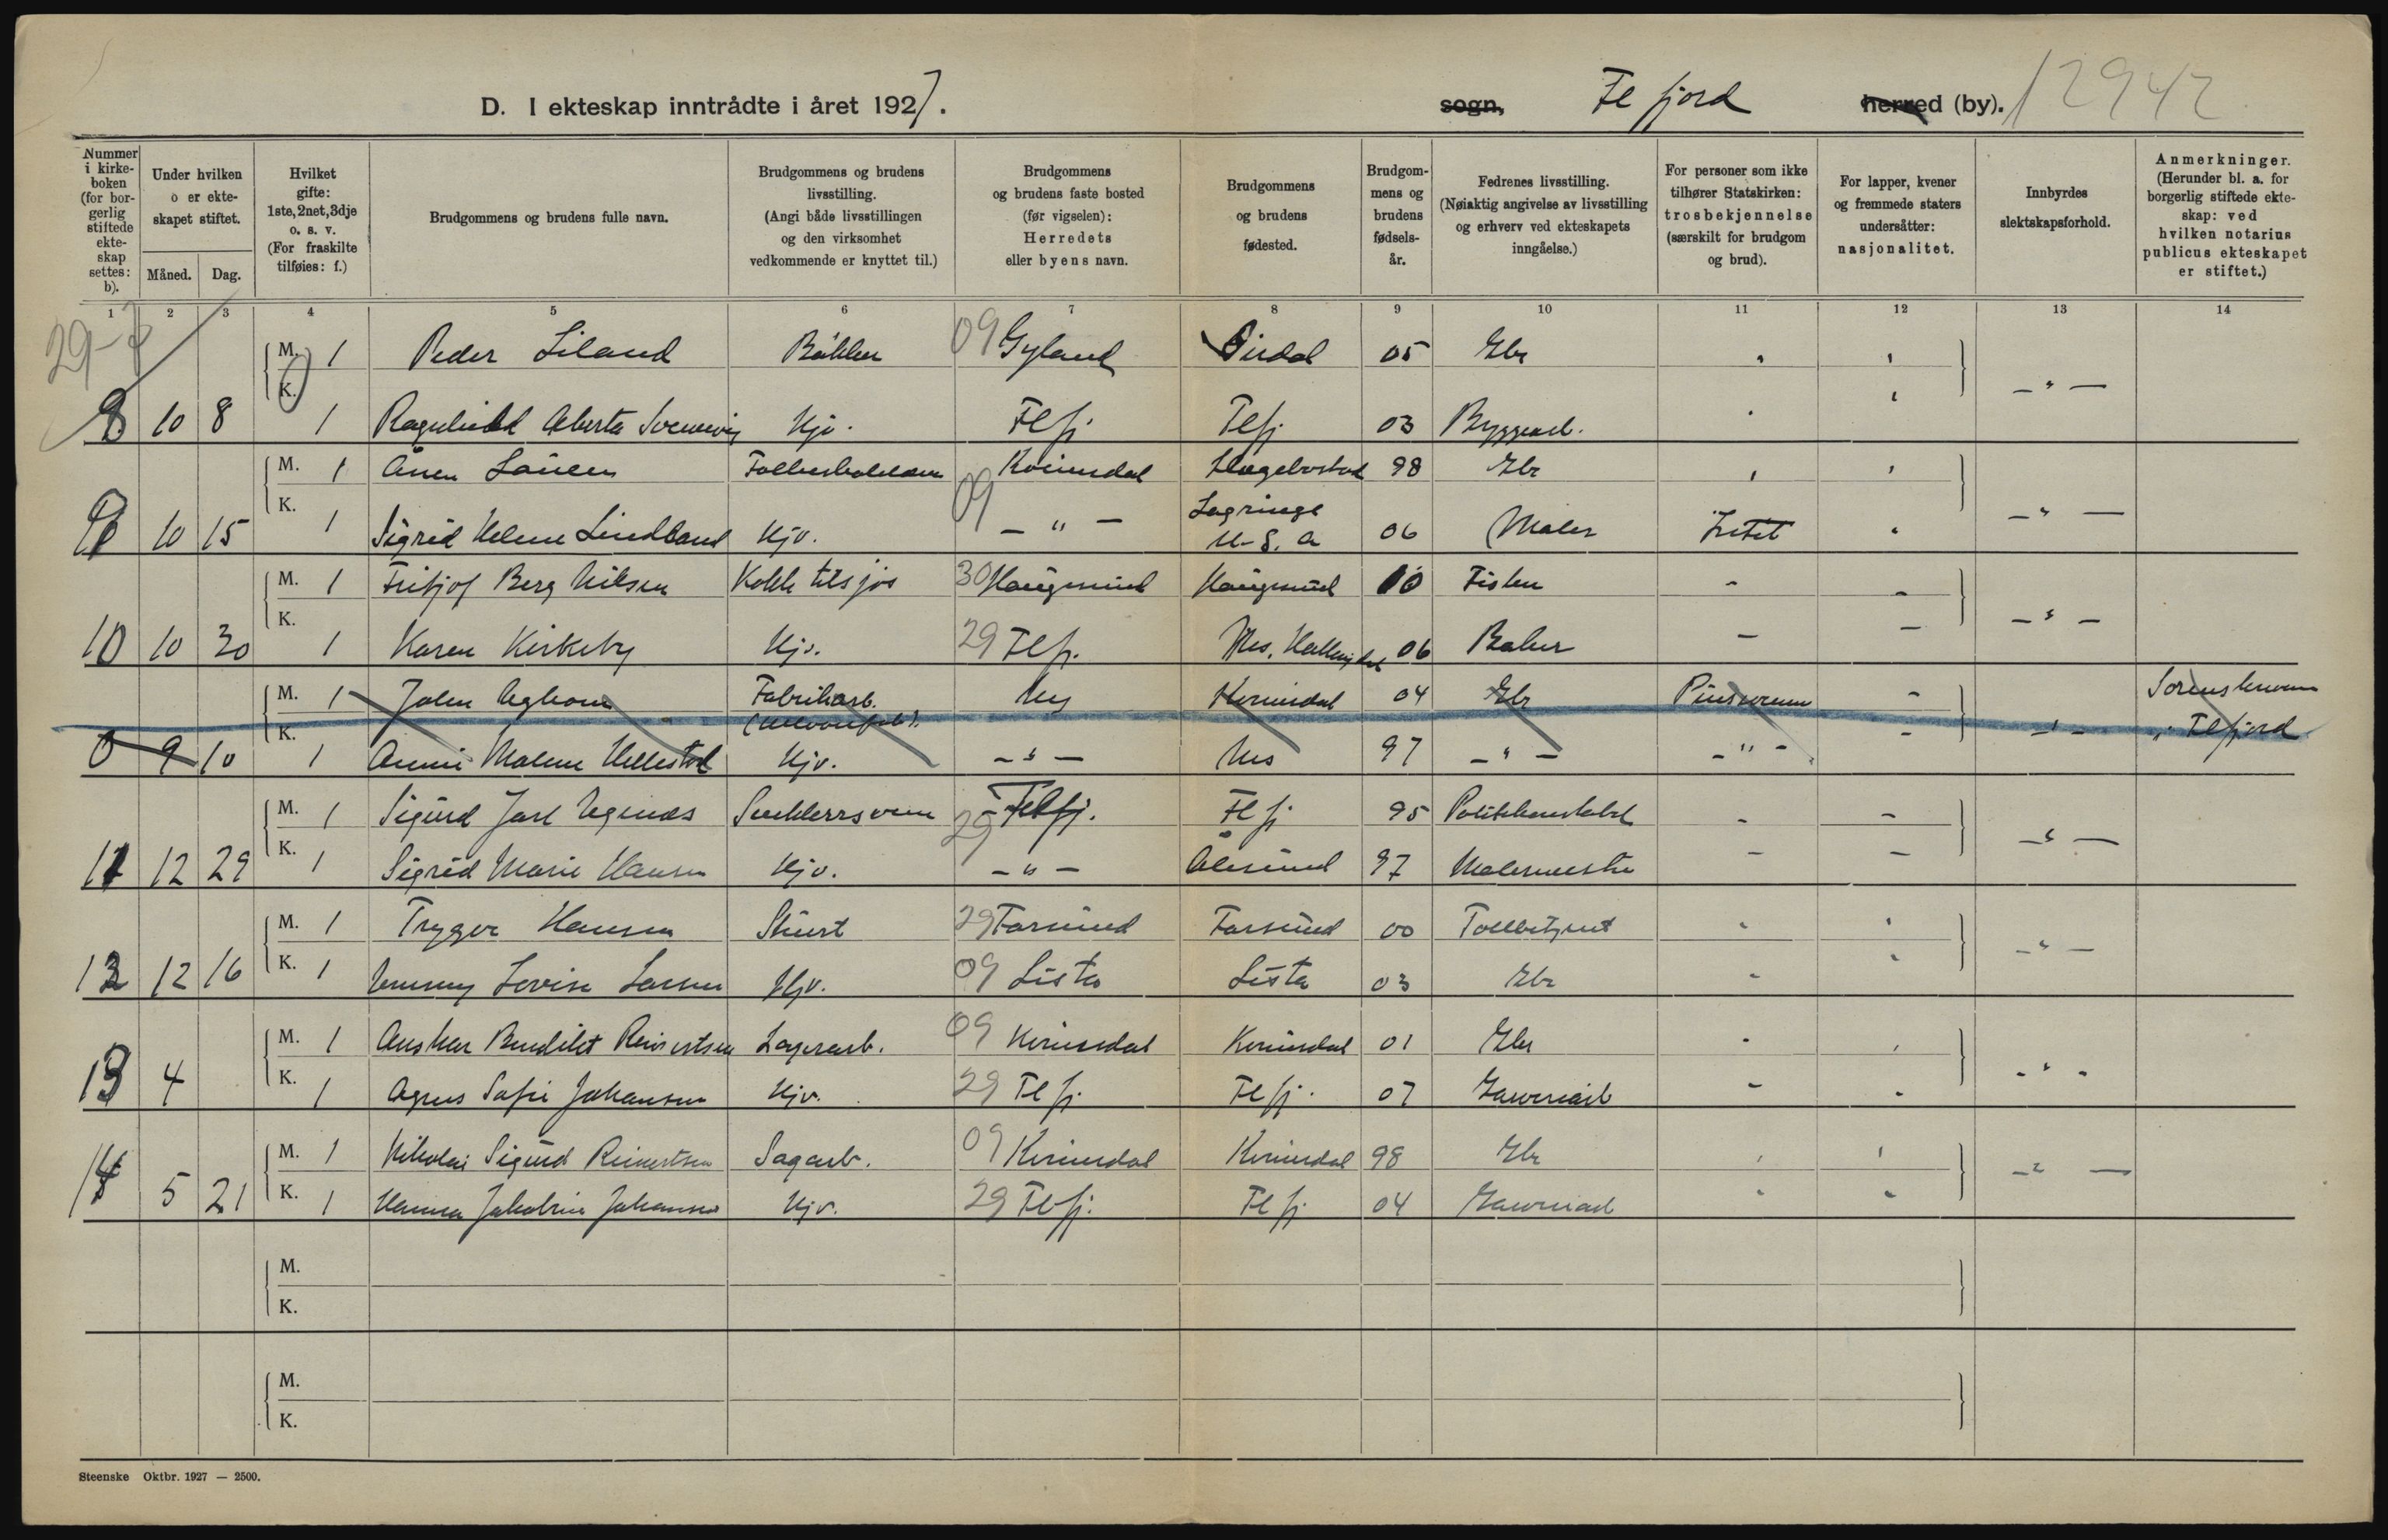 D. I ekteskap inntrådte i året 1927.
sogn, Flfjord herred (by). 12942
Nummer i kirkeboken (for borgerlig stiftede ekteskap settes: b).
Under hvilken o er ekteskapet stiftet.
Måned. Dag.
Hvilket gifte: 1ste, 2net, 3dje o. s. v. (For fraskilte tilføies: f.)
Brudgommens og brudens fulle navn.
Brudgommens og brudens livsstilling. (Angi både livsstillingen og den virksomhet vedkommende er knyttet til.)
Brudgommens og brudens faste bosted (før vigselen): Herredets eller byens navn.
Brudgommens og brudens fødested.
Brudgommens og brudens fødselsår.
Fedrenes livsstilling. (Nøiaktig angivelse av livsstilling og erhverv ved ekteskapets inngåelse.)
For personer som ikke tilhører Statskirken: trosbekjennelse (særskilt for brudgom og brud).
For lapper, kvener og fremmede staters undersåtter: nasjonalitet.
Innbyrdes slektskapsforhold.
Anmerkninger. (Herunder bl. a. for borgerlig stiftede ekteskap: ved hvilken notarius publicus ekteskapet er stiftet.)
1 2 3 4 5 6 7 8 9 10 11 12 13 14
M. 1 Peder Liland 09 Gyland Sirdal 05 Gbr
8 10 8 K. 1 Ragnhild Alberta Hjv. Flfj. Flfj. 03 Byggearb.
M. 1 Lauen Kvinesdal Hægebostad 98 Gbr
10 15 K. 1 Sigrid Helene Lindland Hjv. 09 — " — U. S. A 06 Maler
M. 1 Fritjof Berg Nilsen Kokk tilsjøs 30 Haugesund Haugesund 10 Fisker
10 10 30 K. 1 Karen Kirkeby Hjv. 29 Flfj. Nes, Hallingdal 06 Baker
M. 1 John Fabrikarb. Nes Kvinesdal 04 Gbr Pinseven
0 9 10 K. 1 Malene Hjv. — " — Nes 97 — " — — " — Flfjord
M. 1 Sigurd Jarl Snekkersvenn 29 Flfj. Flfj 95 Politikonstabel
11 12 29 K. 1 Sigrid Marie Hansen Hjv. — " — Ålesund 97 Malermester
M. 1 Trygve Hansen Stuert 29 Farsund Farsund 00 Tollbetjent
12 12 16 K. 1 Lovise Larsen Hjv. 09 Lista Lista 03 Gbr
M. 1 Anskar Bendikt Reinertsen Lagerarb. 09 Kvinesdal Kvinesdal 01 Gbr
13 4 K. 1 Agnes Sofie Johansen Hjv. 29 Flfj. Flfj. 07 Garveriarb
M. 1 Nikolai Sigurd Reinertsen Sagarb. 09 Kvinesdal Kvinesdal 98 Gbr
14 5 21 K. 1 Hanna Jakobine Johansen Hjv. 29 Flfj. Flfj 04 Garveriarb
M.
K.
M.
K.
Steenske Oktbr. 1927 — 2500.